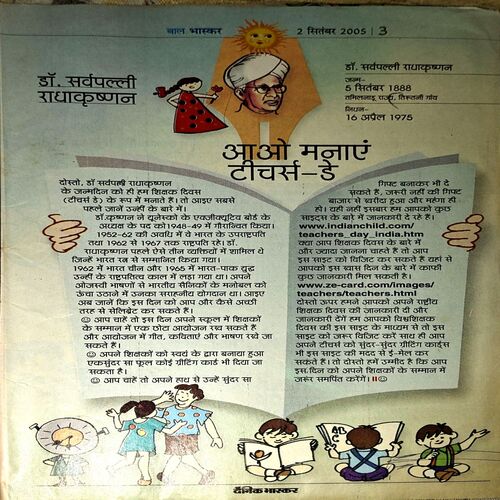 बाल भास्कर
2 सितंबर 2005 | 3
डॉ. सर्वपल्ली
राधाकृष्णन
डॉ. सर्वपल्ली राधाकृष्णन
जन्म-
5 सितंबर 1888
तमिलनाडू राज्य, तिरुतनी गांव
निधन-
16 अप्रैल 1975
आओ मनाएं
टीचर्स-डे
दोस्तो, डॉ सर्वपल्ली राधाकृष्णन
के जन्मदिन को ही हम शिक्षक दिवस
(टीचर्स डे) के रूप में मनाते हैं। तो आइए सबसे
पहले जानें उन्हीं के बारे में।
डॉ.कृष्णन ने यूनेस्को के एक्जीक्यूटिव बोर्ड के
अध्यक्ष के पद को 1948-49 में गौरान्वित किया।
1952-62 की अवधि में वे भारत के उपराष्ट्रपति
तथा 1962 से 1967 तक राष्ट्रपति रहे। डॉ.
राधाकृष्णन पहले ऐसे तीन व्यक्तियों में शामिल थे
जिन्हें भारत रत्न से सम्मानित किया गया।
1962 में भारत चीन और 1965 में भारत-पाक युद्ध
उन्हीं के राष्ट्रपतित्व काल में लड़ा गया था। अपने
ओजस्वी भाषणों से भारतीय सैनिकों के मनोबल को
ऊंचा उठाने में उनका सराहनीय योगदान था। आइए
अब जानें कि इस दिन को आप और कैसे अच्छी
तरह से सेलिब्रेट कर सकते हैं।
☺ आप चाहें तो इस दिन अपने स्कूल में शिक्षकों
के सम्मान में एक छोटा आयोजन रख सकते हैं
और आयोजन में गीत, कविताएं और भाषण रखे जा
सकते हैं।
☺ अपने शिक्षकों को स्वयं के द्वारा बनाया हुआ
एकसुंदर सा फूल कोई ग्रीटिंग कार्ड भी दिया जा
सकता है।
☺ आप चाहें तो अपने हाथ से उन्हें सुंदर सा
गिफ्ट बनाकर भी दे
सकते हैं, जरूरी नहीं की गिफ्ट
बाजार से खरीदा हुआ और महंगा ही
हो। यही नहीं इसबार हम आपको कुछ
साइट्स के बारे में जानकारी दे रहे हैं।
www.indianchild.com/
teachers_day_india.htm
क्या आप शिक्षक दिवस के बारे में
और ज्यादा जानना चाहते हैं तो आप
इस साइट को विजिट कर सकते हैं यहां से
आपको इस खास दिन के बारे में काफी
कुछ जानकारी मिल सकती है।
www.ze-card.com/images/
teachers/teachers.html
दोस्तो ऊपर हमने आपको अपने राष्ट्रीय
शिक्षक दिवस की जानकारी दी और
जानकारी देंगें हम आपको विश्वशिक्षक
दिवस की इस साइट के माध्यम से तो इस
साइट को जरूर विजिट करें साथ ही आप
अपने टीचर्स को सुंदर-सुंदर ग्रीटिंग कार्ड्स
भी इस साइट की मदद से ई-मेल कर
सकते हैं। तो दोस्तो हमें उम्मीद है कि आप
इस दिन को अपने शिक्षकों के सम्मान में
जरूर समर्पित करेंगे।॥☺
ABC
दैनिक भास्कर